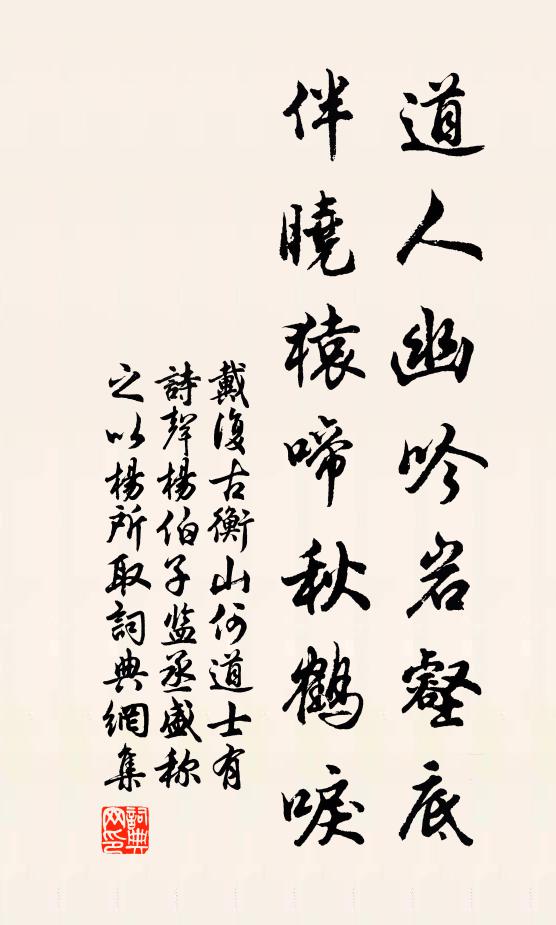 道人幽吟岩壑底
伴曉猿啼秋鶴唳
戴復古衡山何道士有
詩聲楊伯子监丞盛称
之以楊所取詞典網集
詞典网印